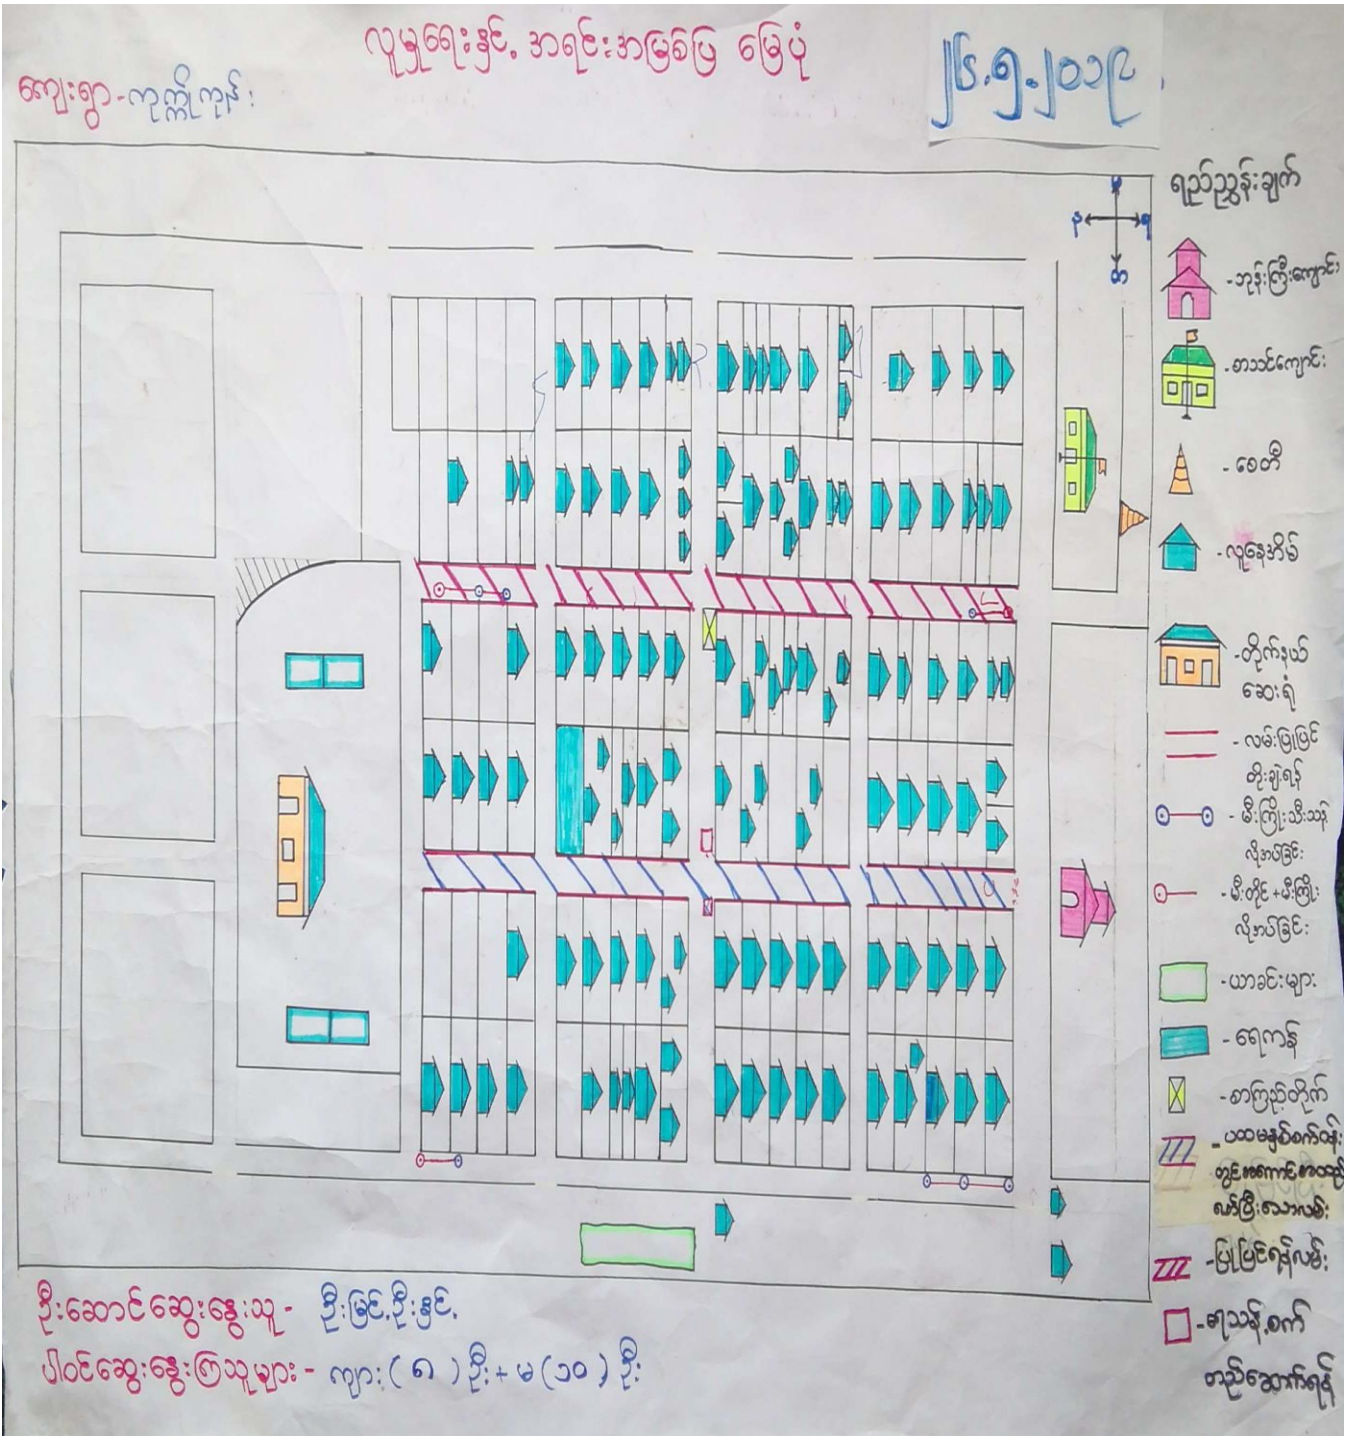 လူမှုရေးနှင့် အရင်းအမြစ်ပြ မြေပုံ
၂၆.၅.၂၀၁၉
ကျေးရွာ-ကုက္ကိုကုန်း
ရည်ညွှန်းချက်
-ဘုန်းကြီးကျောင်း
-စာသင်ကျောင်း
-စေတီ
-လူနေအိမ်
-တိုက်နယ်
ဆေးရုံ
-လမ်းပြုပြင်
တိုးချဲ့ရန်
-မီးကြိုးသီးသန့်
လိုအပ်ခြင်း
-မီးတိုင်+မီးကြိုး
လိုအပ်ခြင်း
-ယာခင်းများ
-ရေကန်
-စာကြည့်တိုက်
-ပထမနှစ်စက်ဝန်း
တွင်အကောင်အထည်
ဖော်ပြီးသောလမ်း
-ပြုပြင်ရန်လမ်း
-ရေသန့်စက်
တည်ဆောက်ရန်
ဦးဆောင်ဆွေးနွေးသူ- ဦးမြင့်ဦးနှင့်
ပါဝင်ဆွေးနွေးကြသူများ- ကျား( ) ဦး+မ(၁၀)ဦး